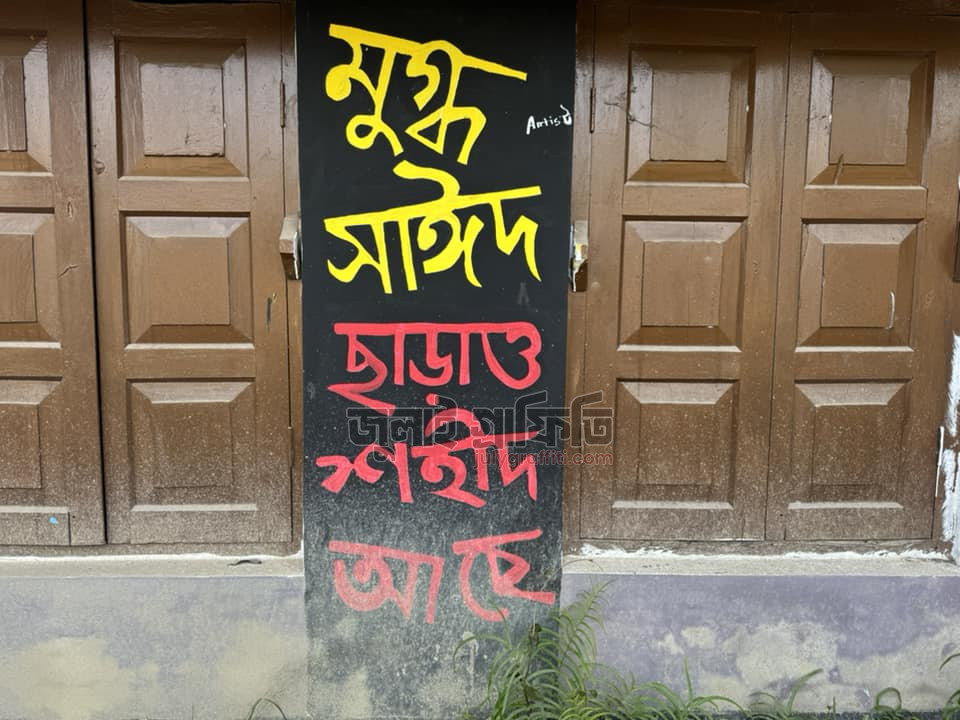 মুগ্ধ
Artist
সাঈদ
ছাড়াও
জুলাই গ্রাফিতি
julygraffiti.com
শহীদ
আছে